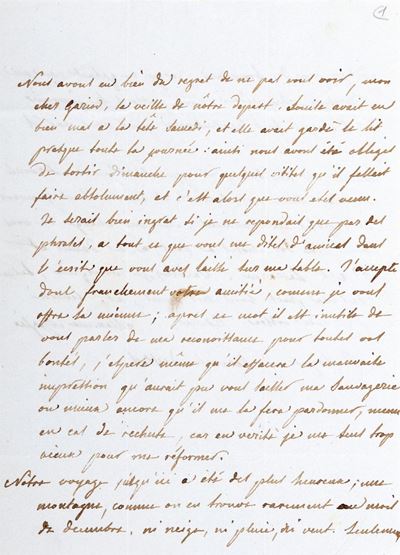 1
Nous avons eu bien du regret de ne pas vous voir, mon
cher la veille de nôtre depart. Lucile avait eu
bien mal a la tête Samedi, et elle avait gardé le lit
presque toute la journée : ainsi nous avons été obligés
de sortir dimanche pour quelques visites qu'il fallait
faire absolument, et c'est alors que vous etes venu.
Je serais bien ingrat si je ne repondais que par des
phrases, a tout ce que vous me dites d'amical dans
l'écrit que vous avez laissé sur ma table. J'accepte
donc franchement votre amitié, comme je vous
offre la mienne ; apres ce mot il est inutile de
vous parler de ma reconoissance pour toutes vos
bontés, j'espere même qu'il effacera la mauvaise
impression qu'aurait pu vous laisser ma Sauvagerie
ou mieux ancore qu'il me la fera pardonner, meme
en cas de rechute, car en verité je me sens trop
vieux pour me réformer.
Nôtre voyage jusqu'ici a été des plus heureux ; une
montagne, comme on en trouve rarement au mois
de decembre, ni neige, ni pluie, ni vent. Seulement